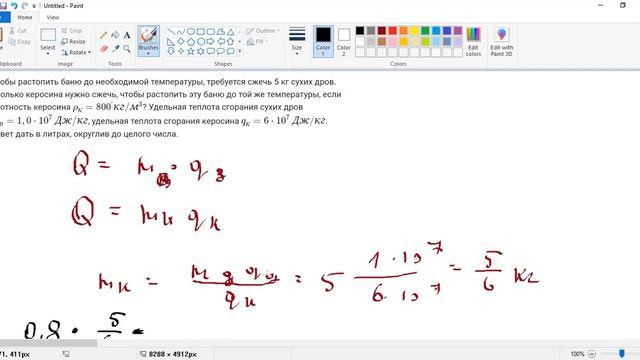 Untitled - Paint
Home View
Cut
Copy
Crop
Resize
Rotate
Brushes
Outline
Fill
Size
Color 1
Color 2
Edit colors
Edit with Paint 3D
Image
Tools
Shapes
Colors
обы растопить баню до необходимой температуры, требуется сжечь 5 кг сухих дров.
олько керосина нужно сжечь, чтобы растопить эту баню до той же температуры, если
отность керосина ρ_К = 800 кг/м³? Удельная теплота сгорания сухих дров
= 1,0 · 10⁷ Дж/кг, удельная теплота сгорания керосина q_К = 6 · 10⁷ Дж/кг.
вет дать в литрах, округлив до целого числа.
Q = m · q
Q = m_к q_к
m_к = m_д q_д / q_к = 5 1·10⁷ / 6·10⁷ = 5/6 кг
0,8 · 5
71, 411px 8288 × 4912px 100%